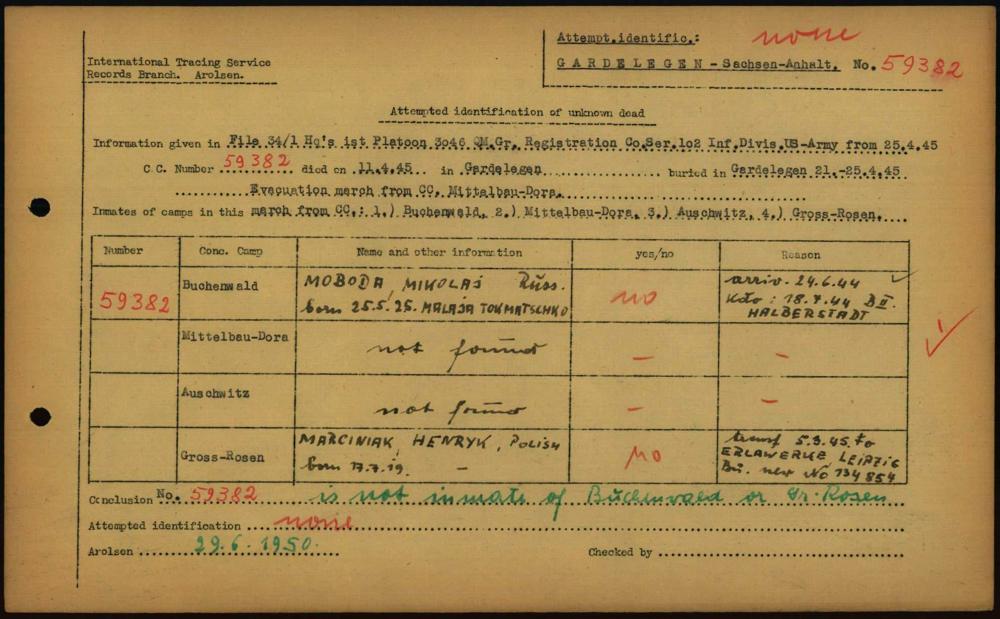 Attempt.identific.: none
International Tracing Service
Records Branch. Arolsen.
GARDELEGEN - Sachsen-Anhalt. No. 59382
Attempted identification of unknown dead
Information given in File 34/1 Hq's 1st Platoon 3o46 QM.Gr. Registration Co.Ser.1o2 Inf.Divis.US-Army from 25.4.45
C.C. Number 59382 died on 11.4.45 in Gardelegen buried in Gardelegen 21.-25.4.45
Evacuation march from CC. Mittelbau-Dora.
Inmates of camps in this march from CC.: 1.) Buchenwald, 2.) Mittelbau-Dora, 3.) Auschwitz, 4.) Gross-Rosen.
Number Conc. Camp Name and other information yes/no Reason
59382 Buchenwald MOBODA, MIKOLAJ Russ. no arriv. 24.6.44
born 25.5.25. MALAJA TOKMATSCHKO Kdo: 18.7.44 BII.
HALBERSTADT
Mittelbau-Dora not found - -
Auschwitz not found - -
Gross-Rosen MARCINIAK, HENRYK, POLISH no transf 5.3.45. to
born 17.7.19. - ERLAWERKE LEIPZIG
Bu. new No 134854
Conclusion No. 59382 is not inmate of Buchenwald or Gr.-Rosen
Attempted identification none
Arolsen 29.6.1950. Checked by